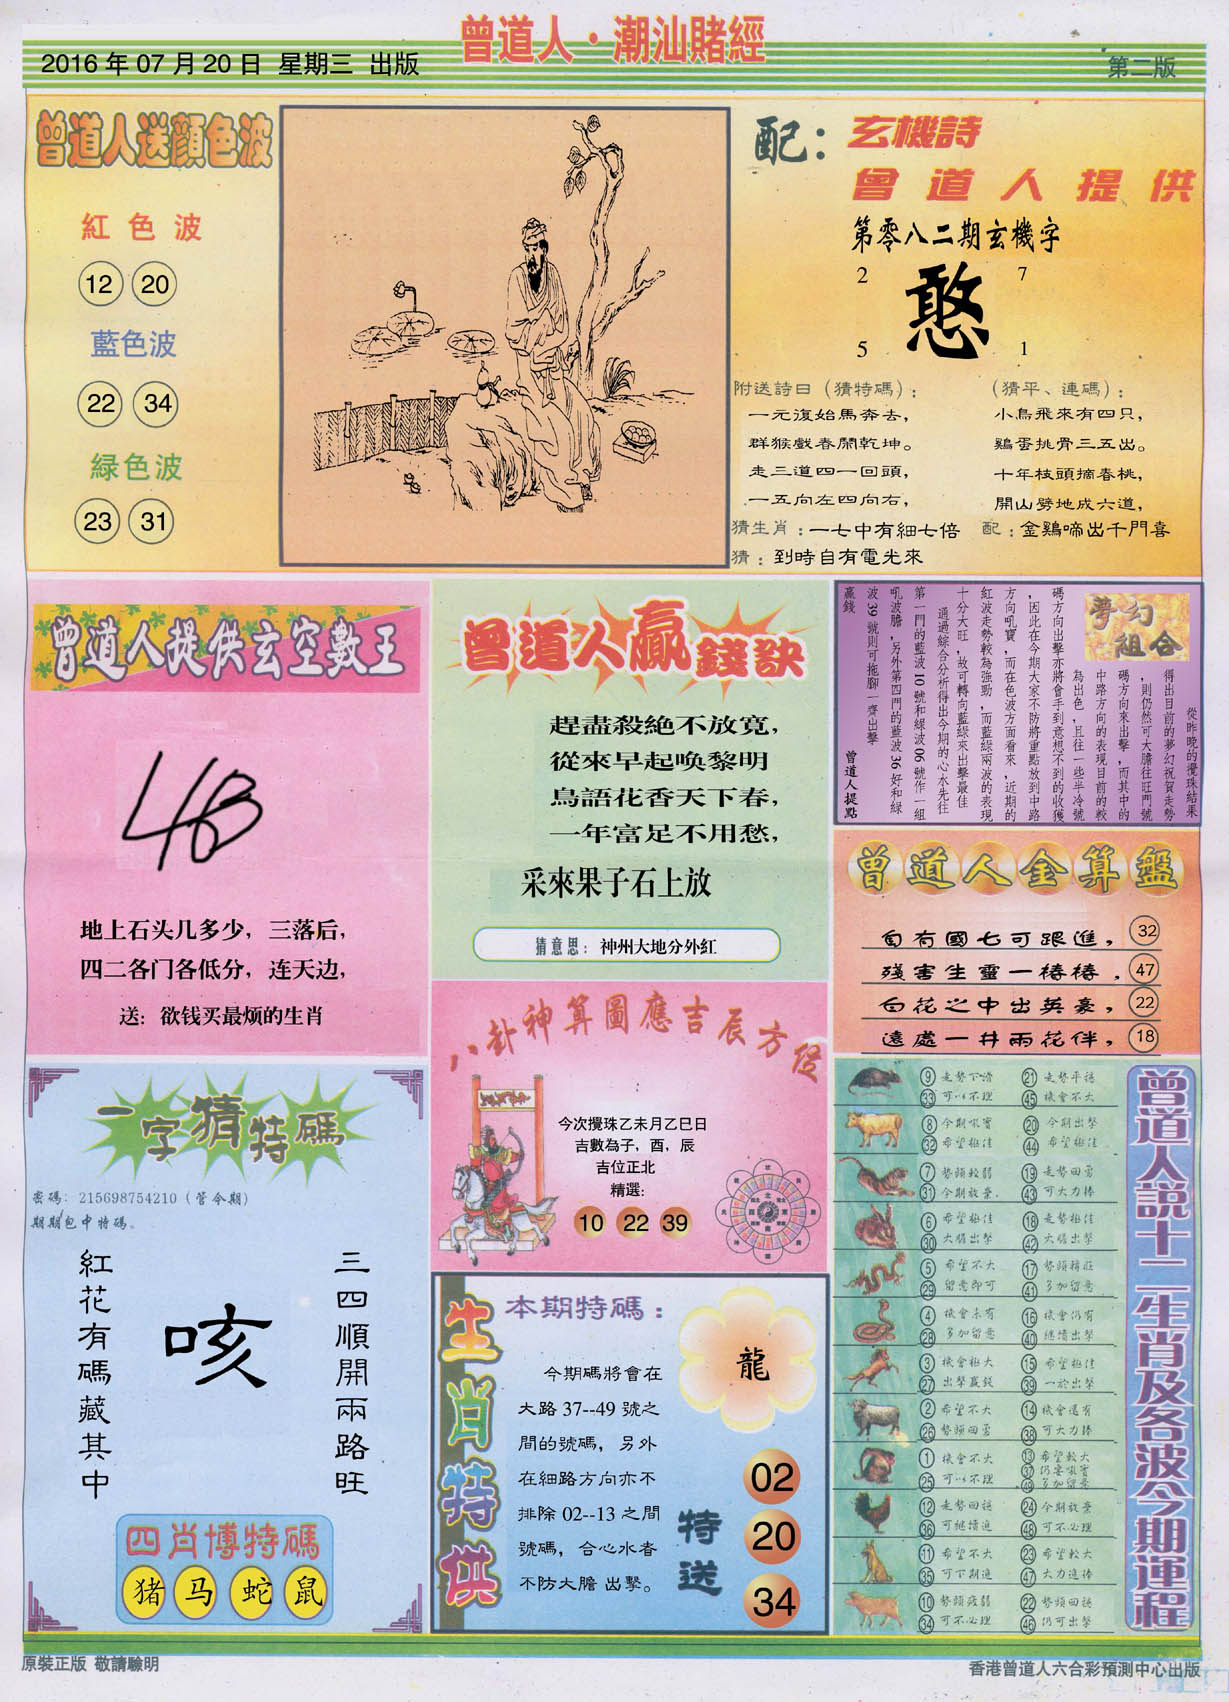 2016年07月20日 星期三 出版
曾道人·潮汕賭經
第二版
曾道人送顔色波
紅色波
12 20
藍色波
22 34
緑色波
23 31
配:
玄機詩
曾道人提供
第零八二期玄機字
2 7
憨
5 1
附送詩曰(猜特碼):
一元復始馬奔去,
群猴戲春鬧乾坤。
走三道四一回頭,
一五向左四向右,
(猜平、連碼):
小鳥飛來有四只,
鷄蛋挑骨三五出。
十年枝頭摘春桃,
開山劈地成六道,
猜生肖:一七中有細七倍
配:金鷄啼出千門喜
猜:到時自有電光來
曾道人提供玄空數王
地上石头几多少，三落后,
四二各门各低分，连天边,
送：欲钱买最烦的生肖
曾道人贏錢訣
趕盡殺絶不放寬,
從來早起唤黎明
鳥語花香天下春,
一年富足不用愁,
采來果子石上放
猜意思：神州大地分外紅
夢幻
組合
從昨晚的攪珠結果
得出目前的夢幻祝賀走勢
，則仍然可大膽往旺門號
碼方向來出擊，而其中的
中路方向的表現目前的較
為出色，且往一些半冷號
碼方向出擊亦將會手到意想不到的收獲
，因此在今期大家不防將重點放到中路
方向吼寶，而在色波方面看來，近期的
紅波走勢較為強勁，而藍綠兩波的表現
十分大旺，故可轉向藍綠來出擊最佳
通過綜合分析得出今期的心水先往
第一門的藍波10號和綠波06號作一組
吼波膽，另外第四門的藍波36好和綠
波39號則可拖腳一齊出擊
贏錢
曾道人提點
曾道人金算盤
自有國七可跟進， 32
殘害生靈一樁樁， 47
百花之中出英豪， 22
遠處一井兩花伴， 18
八卦神算圖應吉辰方位
今次攪珠乙未月乙巳日
吉數為子，酉，辰
吉位正北
精選:
10 22 39
一字猜特碼
密碼: 215698754210 (管今期)
期期包中特碼。
紅花有碼藏其中
咳
三四順開兩路旺
四肖博特碼
猪 马 蛇 鼠
生肖特供
本期特碼:
今期碼將會在
大路37--49號之
間的號碼，另外
在細路方向亦不
排除02--13之間
號碼，合心水者
不防大膽 出擊。
龍
特送
02
20
34
曾道人説十二生肖及各波今期運程
9 走勢下滑 21 走勢平穩
33 可以不理 45 機會不大
8 今期吼寶 20 今期出擊
32 希望極佳 44 希望極佳
7 勢頭較弱 19 走勢回勇
31 今期放棄. 43 可大力捧
6 希望極佳 18 走勢極佳
30 大膽出擊 42 大膽出擊
5 希望不大 17 勢頭轉旺
29 留意即可 41 多加留意
4 機會未有 16 機會仍有
28 多加留意 40 繼續出擊
3 機會極大 15 希望極佳
27 出擊贏錢 39 一於出擊
2 希望不大 14 機會還有
26 勢頭回勇 38 可大力捧
1 機會不大 13 希望較大
25 可以不理 37 仍要吼寶
49 多加留意
12 走勢回穩 24 今期放棄
36 可繼續追 48 可不必理
11 希望不大 23 希望較大
35 可下期追 47 大力追捧
10 勢頭疲弱 22 勢頭回穩
34 可不必理 46 仍可出擊
原裝正版 敬請驗明
香港曾道人六合彩預測中心出版